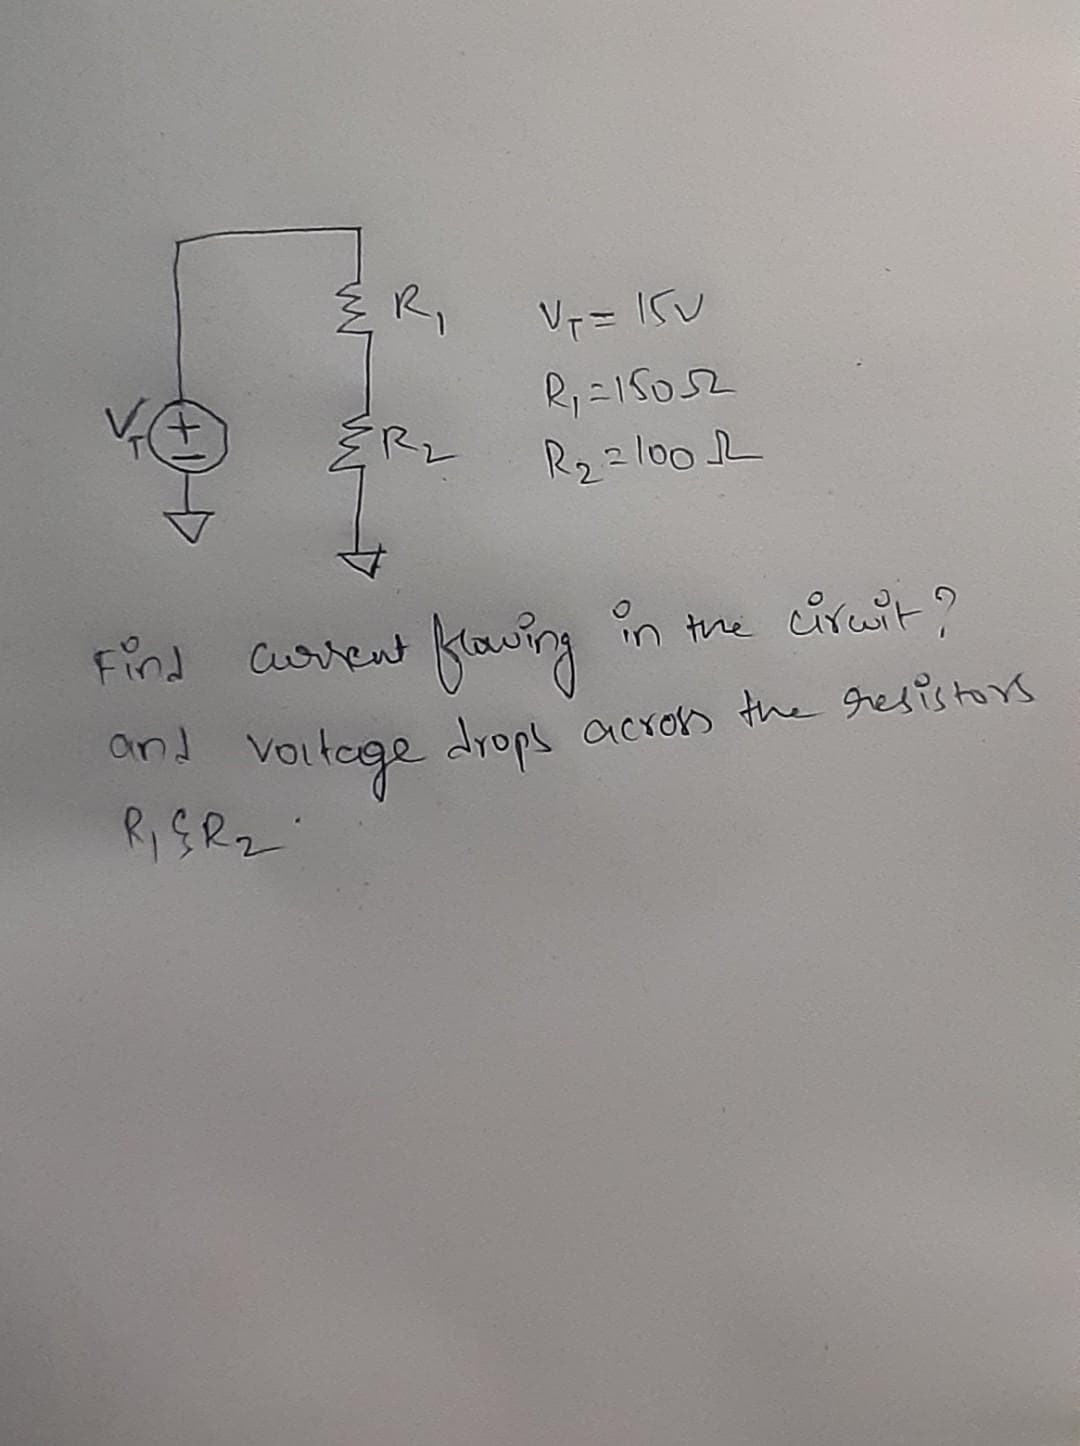 R₁
V_T = 15V
R₁ = 150Ω
V_T
+
R₂
R₂ = 100Ω
Find current flowing in the circuit?
and voltage drops across the resistors
R₁ & R₂.